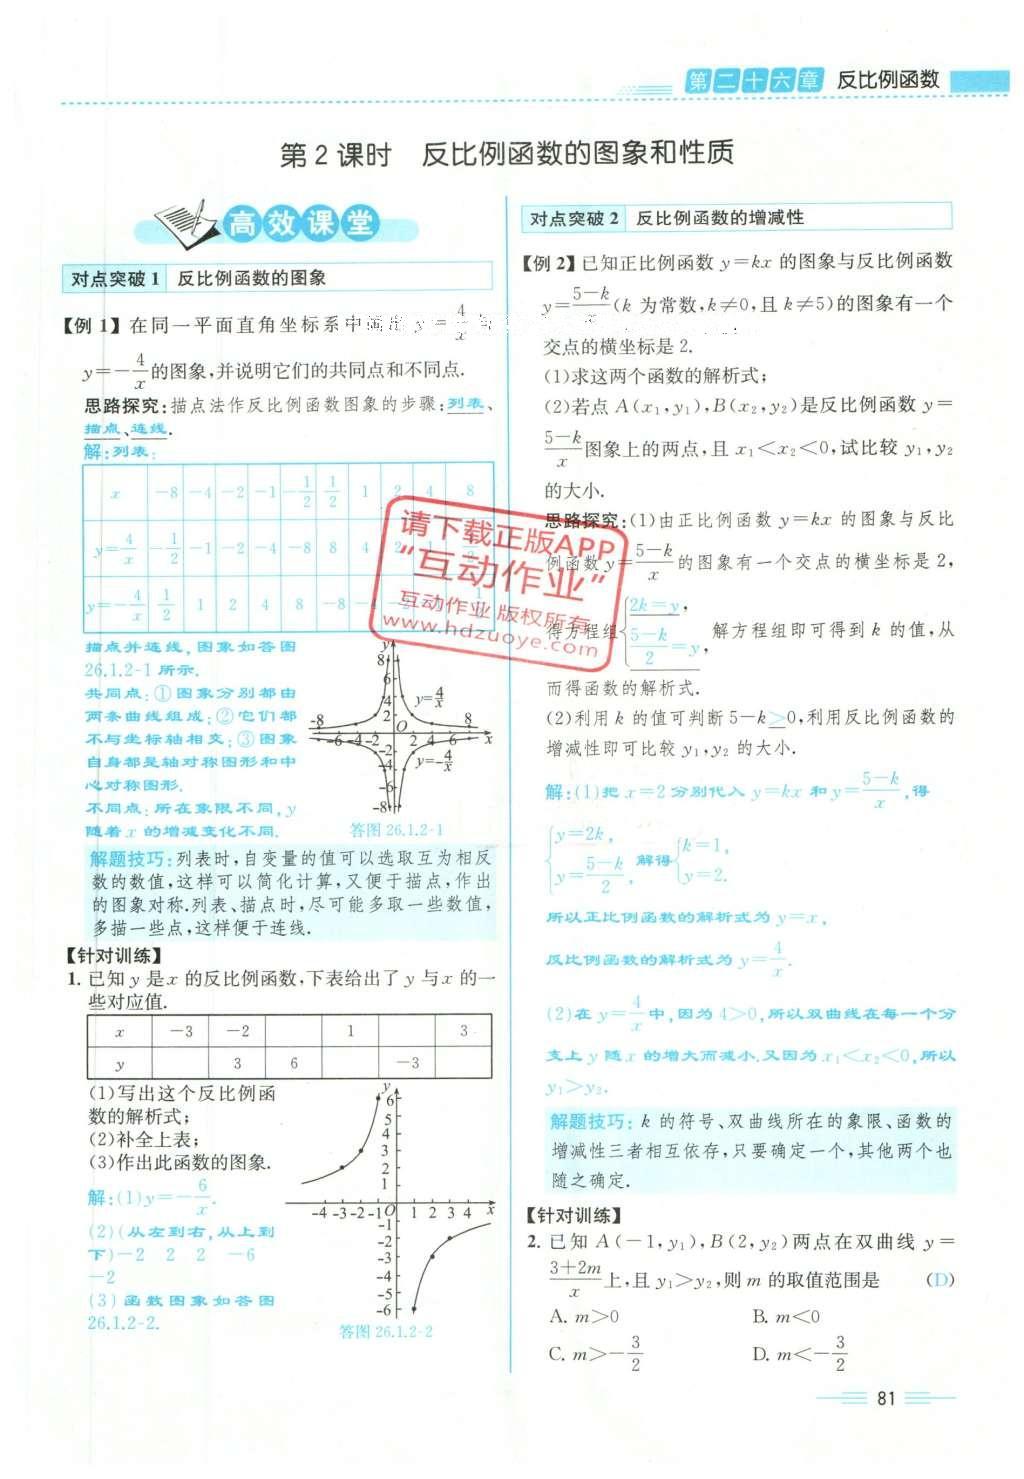 第二十六章 反比例函数
第2课时 反比例函数的图象和性质
高效课堂
对点突破1 反比例函数的图象
【例1】在同一平面直角坐标系中 y=4/x
y=-4/x的图象,并说明它们的共同点和不同点.
思路探究:描点法作反比例函数图象的步骤:列表、
描点、连线.
解:列表:
x -8 -4 -2 -1 -1/2 1/2 1 2 4 8
y=4/x -1/2 -1 -2 -4 -8 8 4 2 1
y=-4/x 1/2 1 2 4 8 -8 -4
描点并连线,图象如答图
26.1.2-1所示.
共同点:①图象分别都由
两条曲线组成;②它们都
不与坐标轴相交;③图象
自身都是轴对称图形和中
心对称图形.
不同点:所在象限不同,y
随着x的增减变化不同.
y
8
6
4
2
-8 O 8
-6 -4 -2 2 4 6 x
-2
-4
-6
-8
y=4/x
y=-4/x
答图26.1.2-1
解题技巧:列表时,自变量的值可以选取互为相反
数的数值,这样可以简化计算,又便于描点,作出
的图象对称.列表、描点时,尽可能多取一些数值,
多描一些点,这样便于连线.
【针对训练】
1. 已知y是x的反比例函数,下表给出了y与x的一
些对应值.
x -3 -2 1 3
y 3 6 -3
(1)写出这个反比例函
数的解析式;
(2)补全上表;
(3)作出此函数的图象.
解:(1)y=-6/x.
(2)(从左到右,从上到
下)-2 2 2 -6
-2
(3)函数图象如答图
26.1.2-2.
y
6
5
4
3
2
1
-4 -3 -2 -1 O 1 2 3 4 x
-1
-2
-3
-4
-5
-6
答图26.1.2-2
对点突破2 反比例函数的增减性
【例2】已知正比例函数y=kx的图象与反比例函数
y=5-k/x(k为常数,k≠0,且k≠5)的图象有一个
交点的横坐标是2.
(1)求这两个函数的解析式;
(2)若点A(x₁,y₁),B(x₂,y₂)是反比例函数y=
5-k/x图象上的两点,且x₁<x₂<0,试比较y₁,y₂
的大小.
思路探究:(1)由正比例函数y=kx的图象与反比
例函数y=5-k/x的图象有一个交点的横坐标是2,
得方程组{2k=y, 5-k/2=y, 解方程组即可得到k的值,从
而得函数的解析式.
(2)利用k的值可判断5-k>0,利用反比例函数的
增减性即可比较y₁,y₂的大小.
解:(1)把x=2分别代入y=kx和y=5-k/x,得
{y=2k, y=5-k/2, 解得{k=1, y=2.
所以正比例函数的解析式为y=x,
反比例函数的解析式为y=4/x.
(2)在y=4/x中,因为4>0,所以双曲线在每一个分
支上y随x的增大而减小.又因为x₁<x₂<0,所以
y₁>y₂.
解题技巧:k的符号、双曲线所在的象限、函数的
增减性三者相互依存,只要确定一个,其他两个也
随之确定.
【针对训练】
2. 已知A(-1,y₁),B(2,y₂)两点在双曲线y=
3+2m/x上,且y₁>y₂,则m的取值范围是 (D)
A. m>0 B. m<0
C. m>-3/2 D. m<-3/2
请下载正版APP
“互动作业”
互动作业 版权所有
www.hdzuoye.com
81